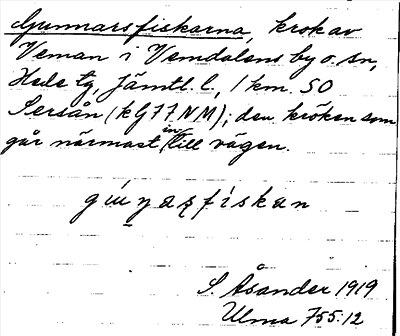 Gunnarsfiskarna, krok av
Veman i Vemdalens by o. sn,
Hede tg, Jämtl. l., 1 km. SO
Sersån (kG77NM); den kröken som
går närmast in till vägen.
S. Åsander 1919
Ulma 755:12